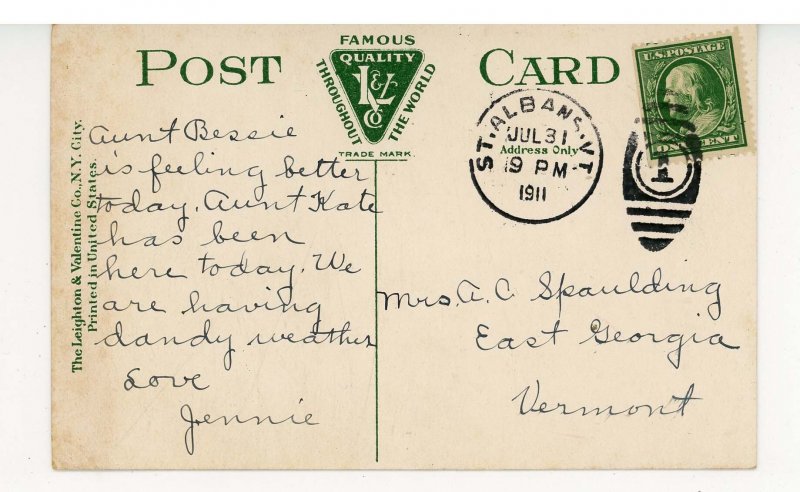 POST CARD
FAMOUS
QUALITY
THROUGHOUT
THE WORLD
L&V Co
TRADE MARK
The Leighton & Valentine Co., N.Y. City.
Printed in United States.
Address Only
ST. ALBANS, VT.
JUL 31
9 PM
1911
U.S. POSTAGE
ONE CENT
1
Aunt Bessie
is feeling better
today. Aunt Kate
has been
here today. We
are having
dandy weather
Love
Jennie
Mrs. A. C. Spaulding
East Georgia
Vermont